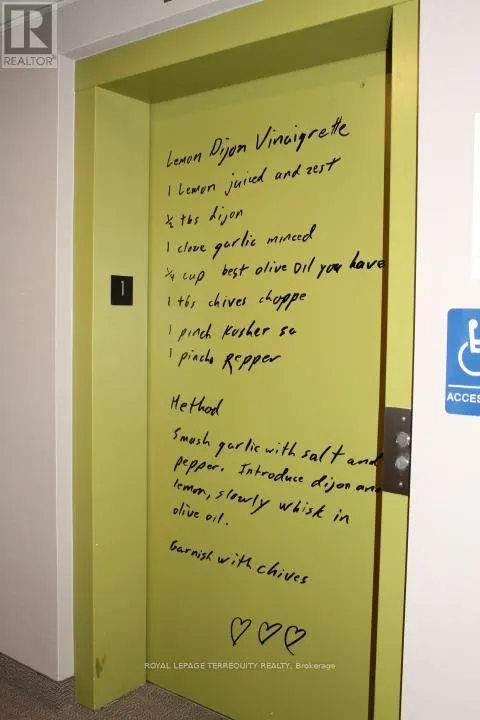 R
REALTOR®
Lemon Dijon Vinaigrette
1 Lemon juiced and zest
½ tbs dijon
1 clove garlic minced
¼ cup best olive oil you have
1 tbs chives choppe
1 pinch Kosher sa
1 pinch Pepper
1
Method
Smash garlic with salt and
pepper. Introduce dijon an
lemon, slowly whisk in
olive oil.
Garnish with chives
ACCES
ROYAL LEPAGE TERREQUITY REALTY, Brokerage